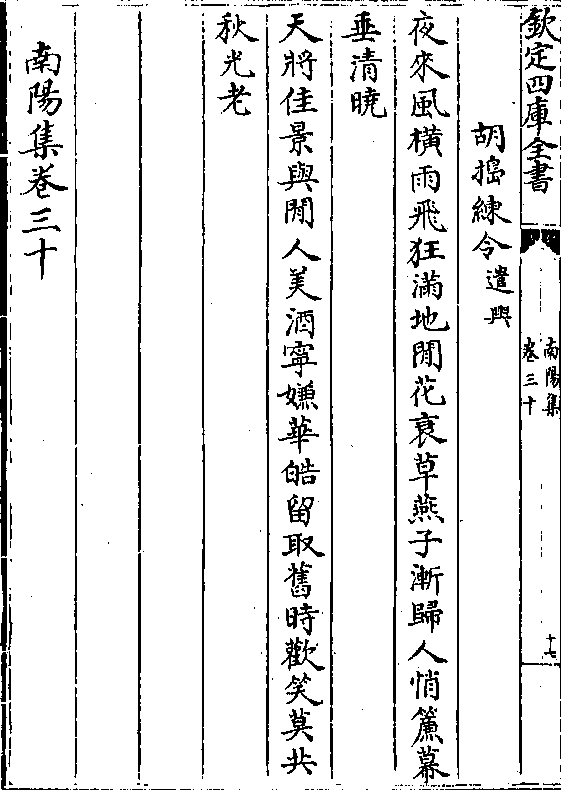 欽定四庫全書
南陽集
卷三十
十七
胡搗練令遣興
夜來風橫雨飛狂滿地閒花衰草燕子漸歸人悄簾幕
垂清曉
天將佳景與閒人美酒寧嫌華皓留取舊時歡笑莫共
秋光老
南陽集卷三十